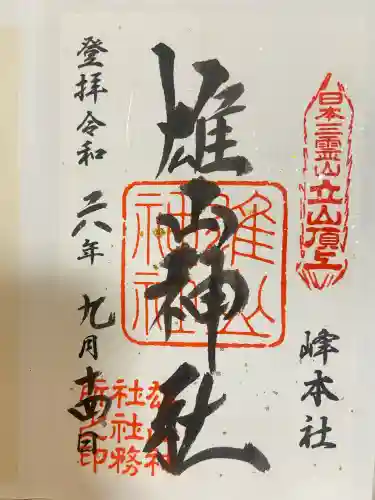 日本三霊山立山頂上
峰本社
雄山神社
雄山
神社
登拝令和六年九月十四日
社社務